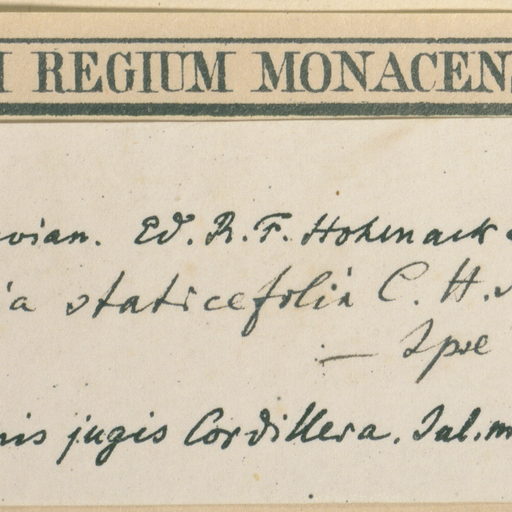 I REGIUM MONACENS
vian. Ed. R. F. Hohenack
ia staticefolia C. H. S
— Ipse
nis jugis Cordillera. Jul. m